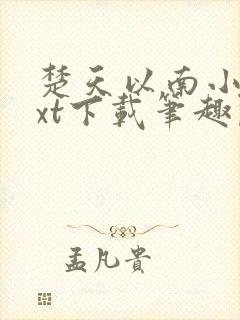 楚天以南小
xt下載筆趣
孟凡貴